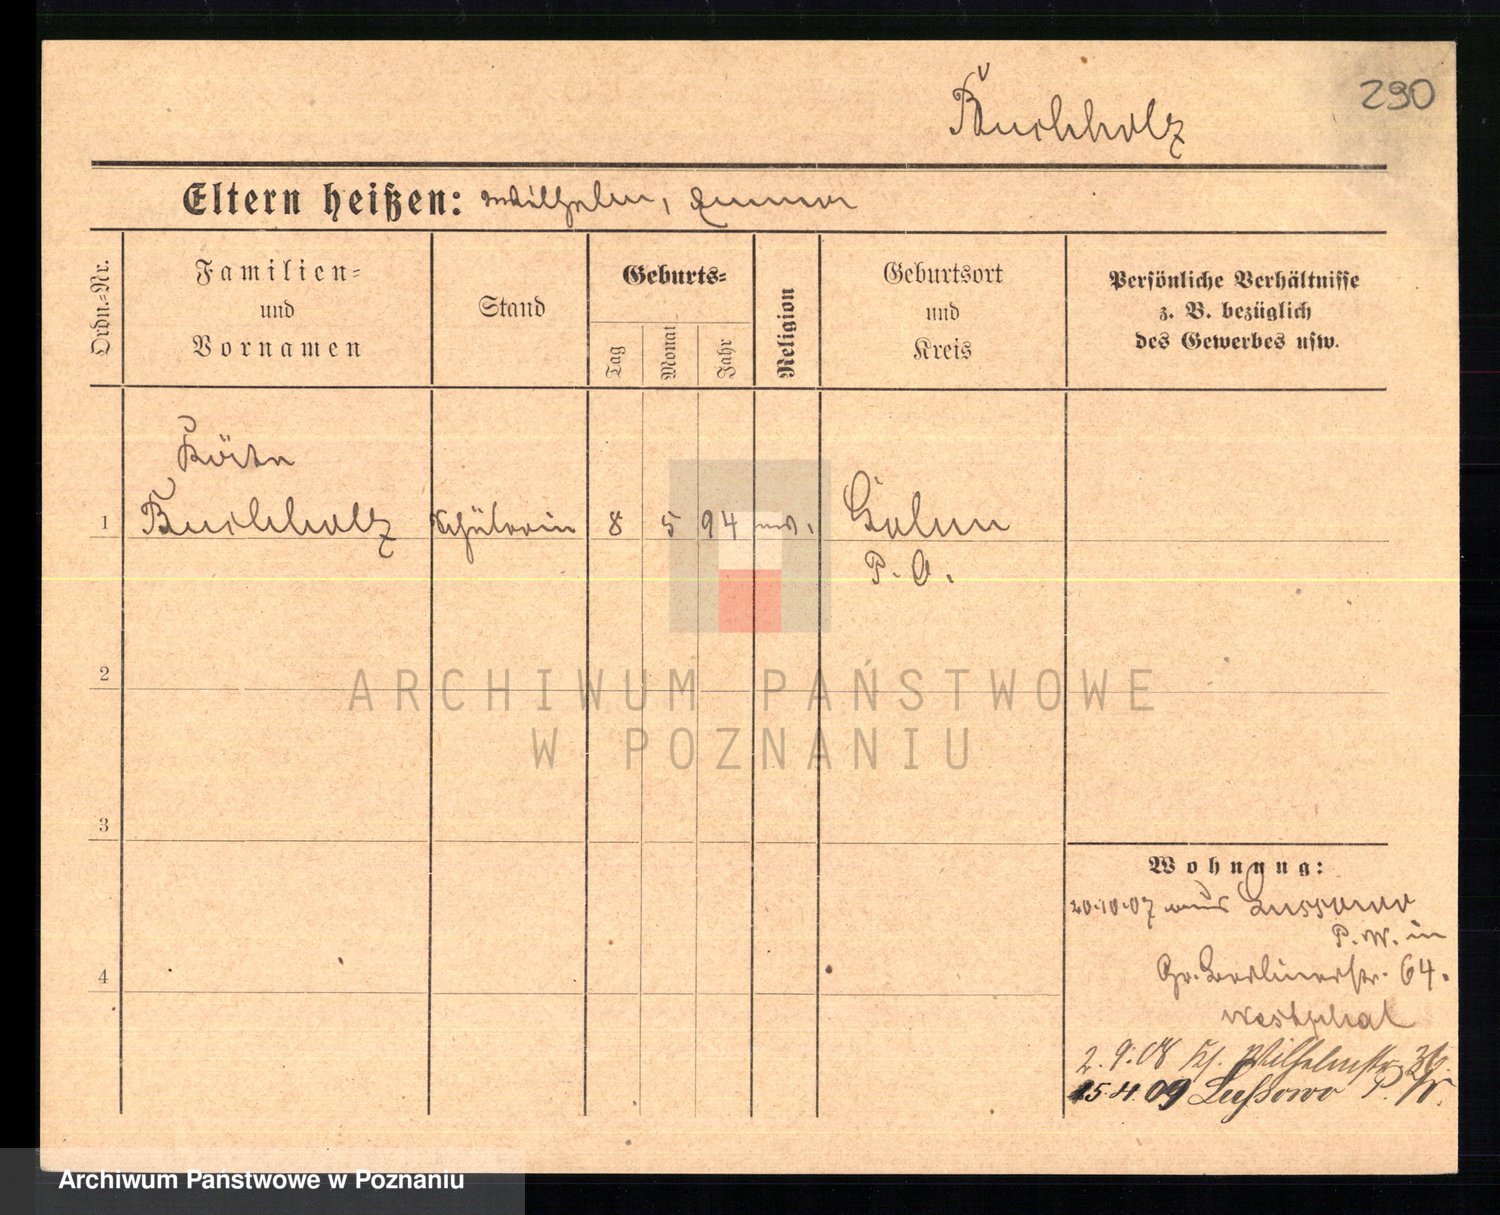 290
Buchholz
Eltern heißen: Wilhelm, Emma
Ordn.=Nr.
Familien=
und
Vornamen
Stand
Geburts=
Tag
Monat
Jahr
Religion
Geburtsort
und
Kreis
Persönliche Verhältnisse
z. B. bezüglich
des Gewerbes usw.
Käthe
1 Buchholz Schülerin 8 5 94
P. O.
2
3
4
ARCHIWUM PAŃSTWOWE
W POZNANIU
Wohnung:
20.10.07 aus Lussowo
P. W. in
Gr. Berlinerstr. 64.
Westphal
2.9.08 Kl. Wilhelmstr.
15.4.09 Lussowo P. W.
Archiwum Państwowe w Poznaniu